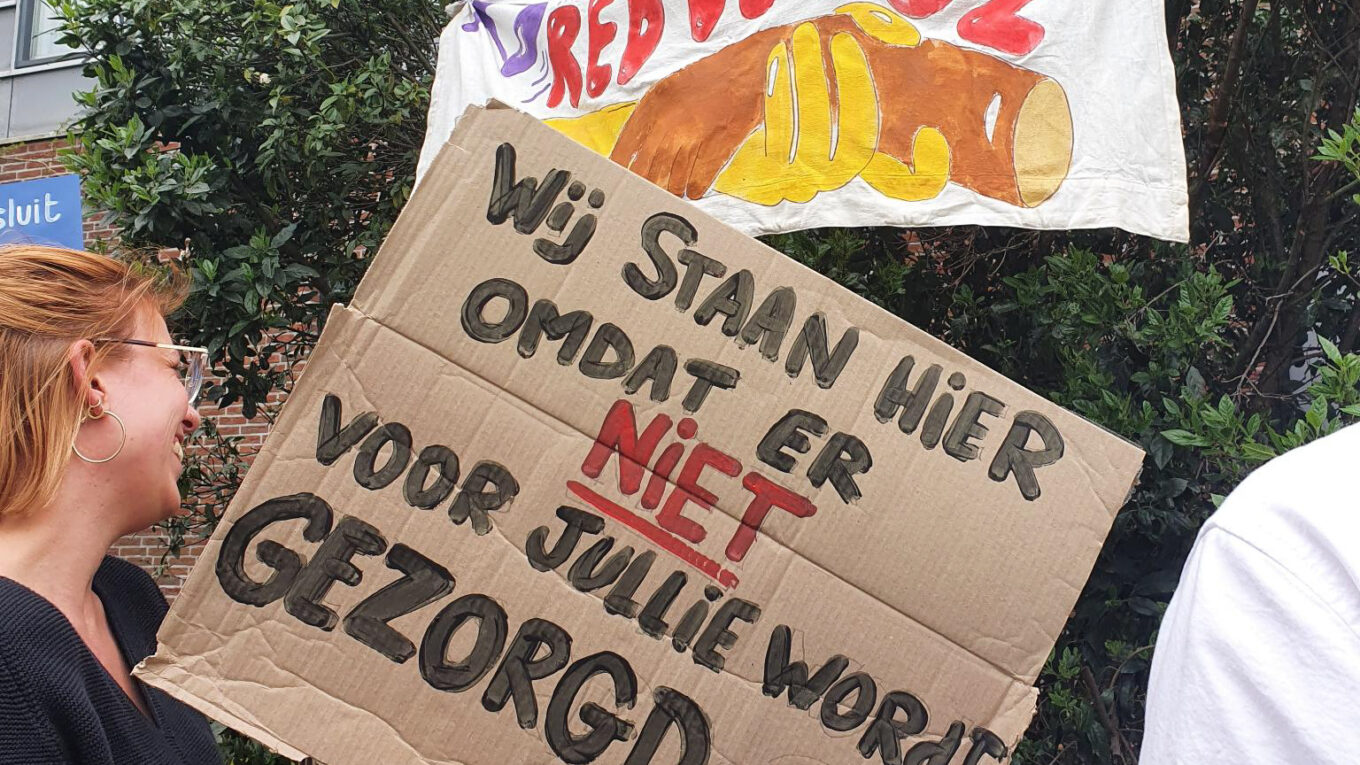 RED
sluit
Wij STAAN HiER
OMDAT ER
NiET
VOOR JULLiE WORDT
GEZORGD